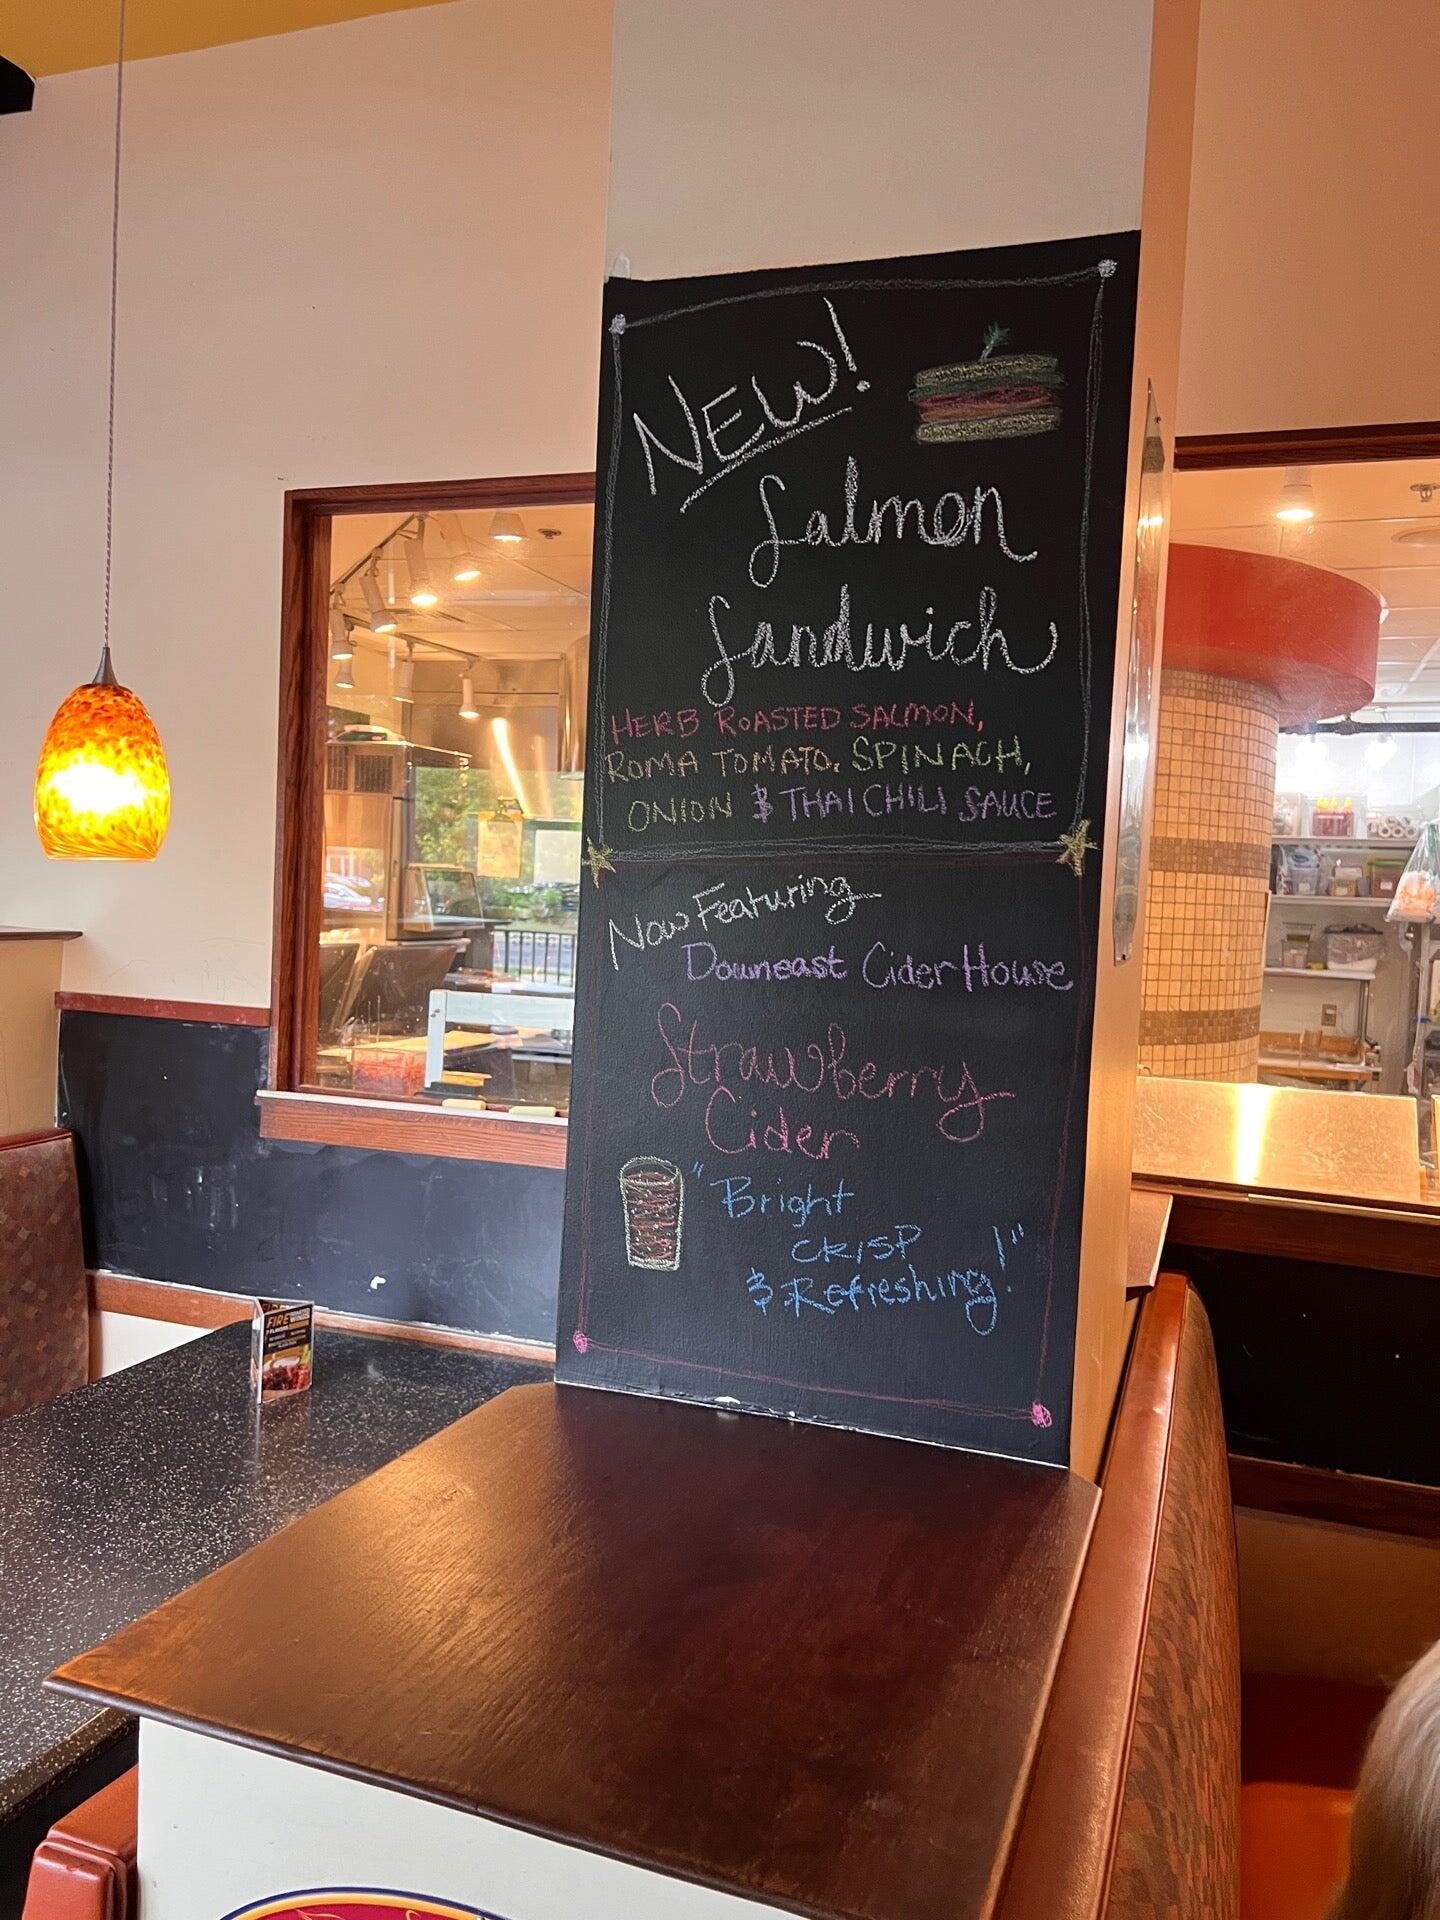 NEW!
Salmon
Sandwich
HERB ROASTED SALMON,
ROMA TOMATO, SPINACH,
ONION & THAI CHILI SAUCE
Now Featuring
Downeast Cider House
Strawberry
Cider
"Bright
CRISP
& Refreshing!"
FIRE